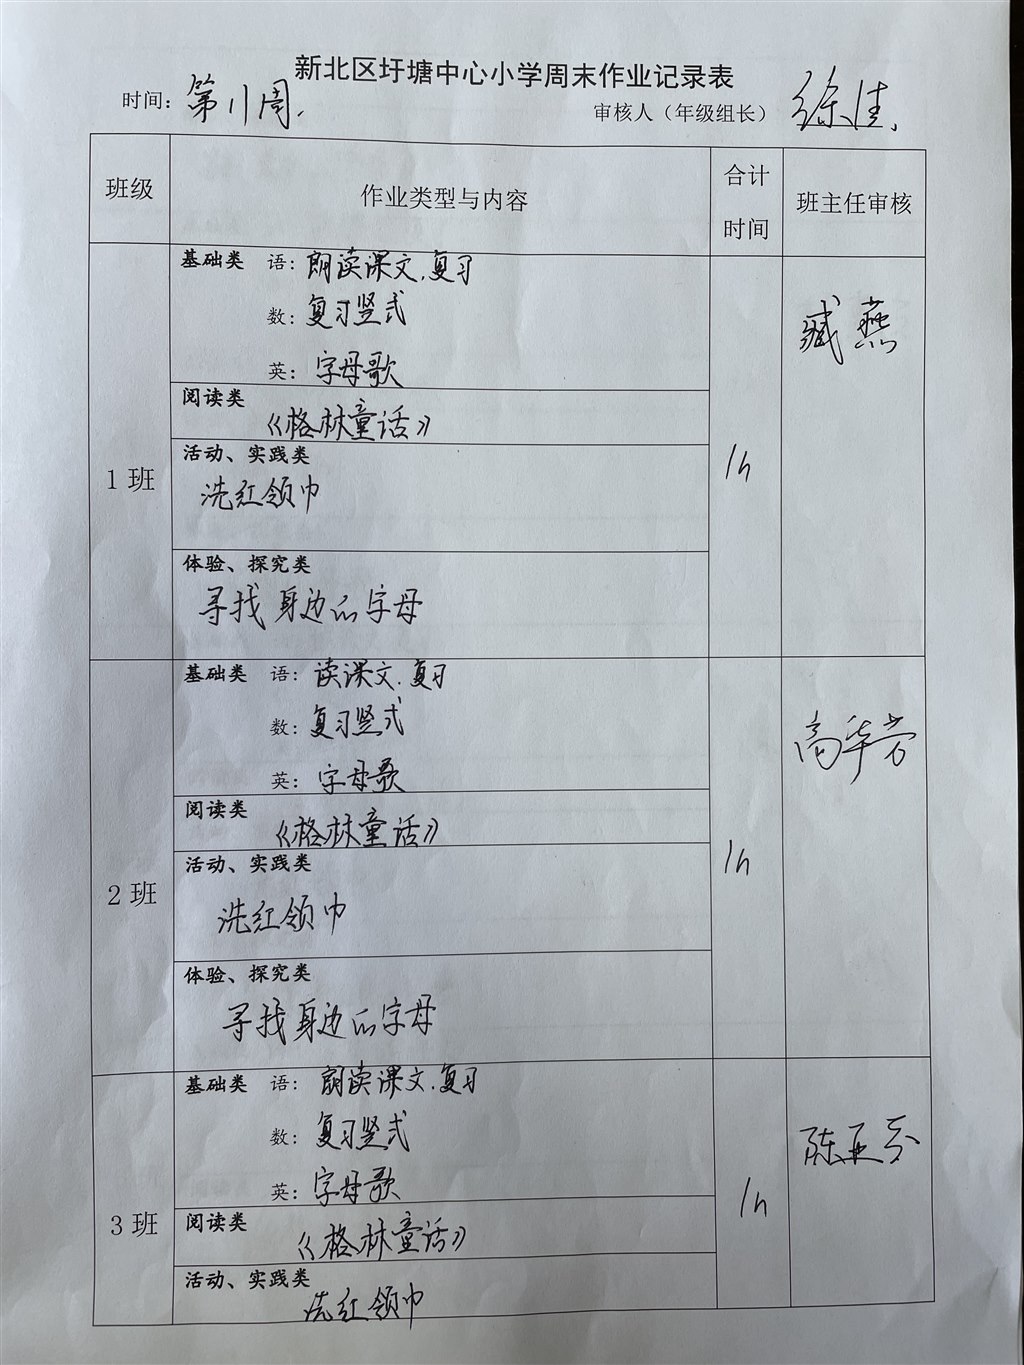 新北区圩塘中心小学周末作业记录表
时间：第11周. 审核人（年级组长） 徐佳.
班级 作业类型与内容 合计时间 班主任审核
1班 1h 臧燕
基础类 语：朗读课文.复习
数：复习竖式
英：字母歌
阅读类
《格林童话》
活动、实践类
洗红领巾
体验、探究类
寻找身边的字母
2班 1h 高华芳
基础类 语：读课文.复习
数：复习竖式
英：字母歌
阅读类
《格林童话》
活动、实践类
洗红领巾
体验、探究类
寻找身边的字母
3班 1h 陈亚芬
基础类 语：朗读课文.复习
数：复习竖式
英：字母歌
阅读类
《格林童话》
活动、实践类
洗红领巾